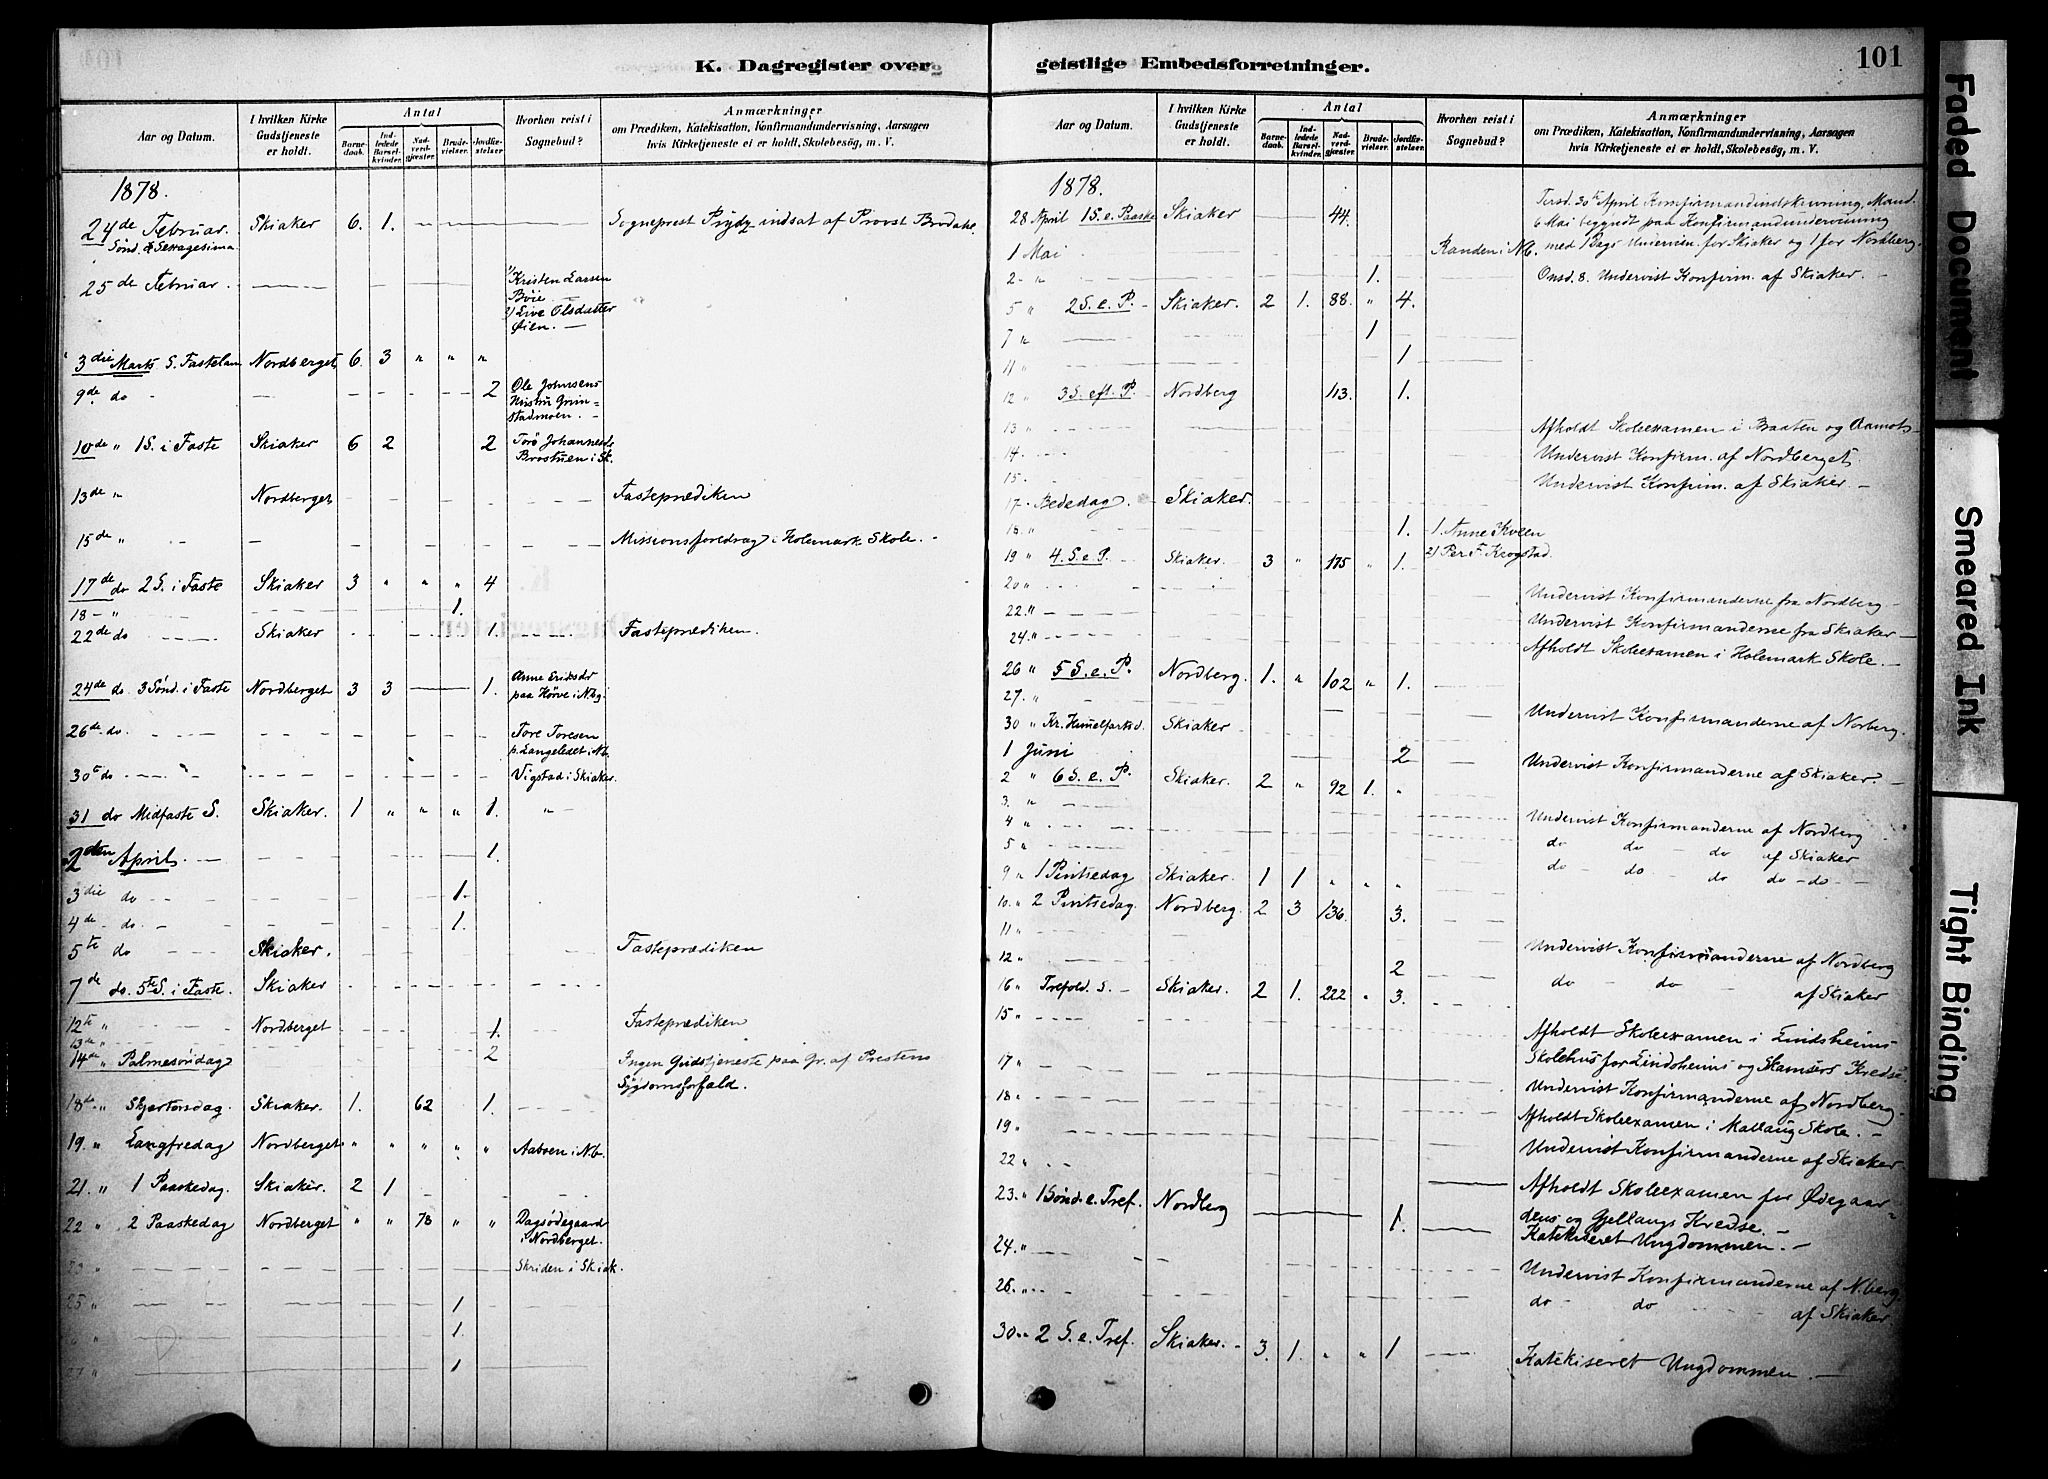 K. Dagregister over
Aar og Datum.
I hvilken Kirke Gudstjeneste er holdt.
Antal
Barnedaab.
Indledede Barselkvinder.
Nadverdgjæster.
Brudevielser.
Jordfæstelser.
Hvorhen reist i Sognebud?
Anmærkninger
om Prædiken, Katekisation, Konfirmandundervisning, Aarsagen
hvis Kirketjeneste ei er holdt, Skolebesög, m. V.
1878.
24de Februar. Skiaker 6. 1. Sogneprest Prydz indsat af Provst Brodahl.
Sønd. Sexagesima
25de Februar. 1/ Kristen Larsen
Böie
2/ Live Olsdatter
Øien.
3die Marts S. Fastelan Nordberget 6. 3 " " "
9de do 2 Ole Johnsens
Hustru Grim-
stadmoen.
10de " 1 S. i Faste Skiaker 6 2 2 Torø Johannesdr
Brostuen i Sk.
13de " Nordberget Fasteprædiken
15de " Missionsforedrag i Holemark Skole.
17de do 2 S. i Faste Skiaker 3 " " " 4
18 - " 1.
22de do Skiaker 1. Fasteprædiken.
24de do. 3 Sønd. i Faste Nordberget 3 3 1. Anne Eriksdr
paa Hörve i Nbg.
26de do. Tore Toresen
p. Langeledet i Nb.
30te do Vigstad i Skiaker.
31 do Midfaste S. Skiaker. 1 " " " 1. "
2den April. 1.
3die do 1.
4de do. 1.
5te do Skiaker. Fasteprædiken
7de do. 5te S. i Faste. Skiaker
12te " Nordberget 1. Fasteprædiken
13de "
14de " Palmesöndag 2 Ingen Gudstjeneste paa Gr. af Prestens
Sygdomsforfald.
18de " Skjærtorsdag. Skiaker. 1. 62 1.
19. " Langfredag Nordberget " " " " " Aabren i Nb.
21. " 1 Paaskedag. Skiaker. 2 1
22 " 2 Paaskedag Nordberget " " 78 " " Dagsødegaard
i Nordberget.
23 " Skriden i Skiak.
25 " 1
" 1.
27 " 1
geistlige Embedsforretninger.
101
Aar og Datum.
I hvilken Kirke Gudstjeneste er holdt.
Antal
Barnedaab.
Indledede Barselkvinder.
Nadverdgjæster.
Brudevielser.
Jordfæstelser.
Hvorhen reist i Sognebud?
Anmærkninger
om Prædiken, Katekisation, Konfirmandundervisning, Aarsagen
hvis Kirketjeneste ei er holdt, Skolebesög, m. V.
1878.
Tirsd. 30te April Konfirmandindskrivning, Mand.
28 April 1 S. e. Paaske Skiaker 44. 6 Mai begyndt paa Konfirmandundervisning
1 Mai Randen i Nb. med 1 Dags Undervisn. for Skiaker og 1 for Nordberg.
2 - " 1. Onsd. 8. Undervist Konfirm. af Skiaker.
5 " 2 S. e. P. Skiaker. 2 1. 88. " 4.
7 " 1
11 " 1
12 " 3 S. eft. P. Nordberg 113. 1.
13 " Afholdt Skoleexamen i Braaten og Aamots
14. Undervist Konfirm. af Nordberget
15. Undervist Konfirm. af Skiaker.
17. Bededag. Skiaker.
18. " 1. 1. Anne Kveen
19 " 4. S. e. P. Skiaker. 3 " 175 " 1. 2) Per F. Krogstad.
20 " Undervist Konfirmanderne fra Nordberg
22. " Undervist Konfirmanderne fra Skiaker
24. " Afholdt Skoleexamen i Holemark Skole.
26 " 5 S. e. P. Nordberg. 1. " 102 " 1.
27. " Undervist Konfirmanderne af Norberg.
30 " Kr. Himmelfartsd. Skiaker
1 Juni 2 Undervist Konfirmanderne af Skiaker.
2 " 6 S. e. P. Skiaker. 2 " 92 1. "
3. " Undervist Konfirmanderne af Nordberg
4 " do do do af Skiaker
5 " do do do do do
9 " 1 Pintsedag Skiaker. 1 1 " " "
10. " 2 Pintsedag. Nordberg. 2 3 136. 3.
11 " Undervist Konfirmanderne af Nordberg
12 " 2 do do af Skiaker
16 " Trefold. S. Skiaker. 2 1. 222 " 3.
15 " Afholdt Skoleexamen i Lindsheims
17 " Skolehus for Lindsheims og Skamsers Kredse
18 " Undervist Konfirmanderne af Nordberg
19 " Afholdt Skoleexamen i Mallaug Skole.
22 " Undervist Konfirmanderne af Skiaker
23. " 1 Sønd. e. Tref. Nordberg 1. Afholdt Skoleexamen for Ødegaar-
dens og Gjellangs Kredse.
24. " Katekiseret Ungdommen.
Undervist Konfirmanderne af N.berg.
26. " do do af Skiaker.
30. " 2 S. e. Tref. Skiaker. 3. 1. " " 1 Katekiseret Ungdommen.
Faded Document
Smeared Ink
Tight Binding